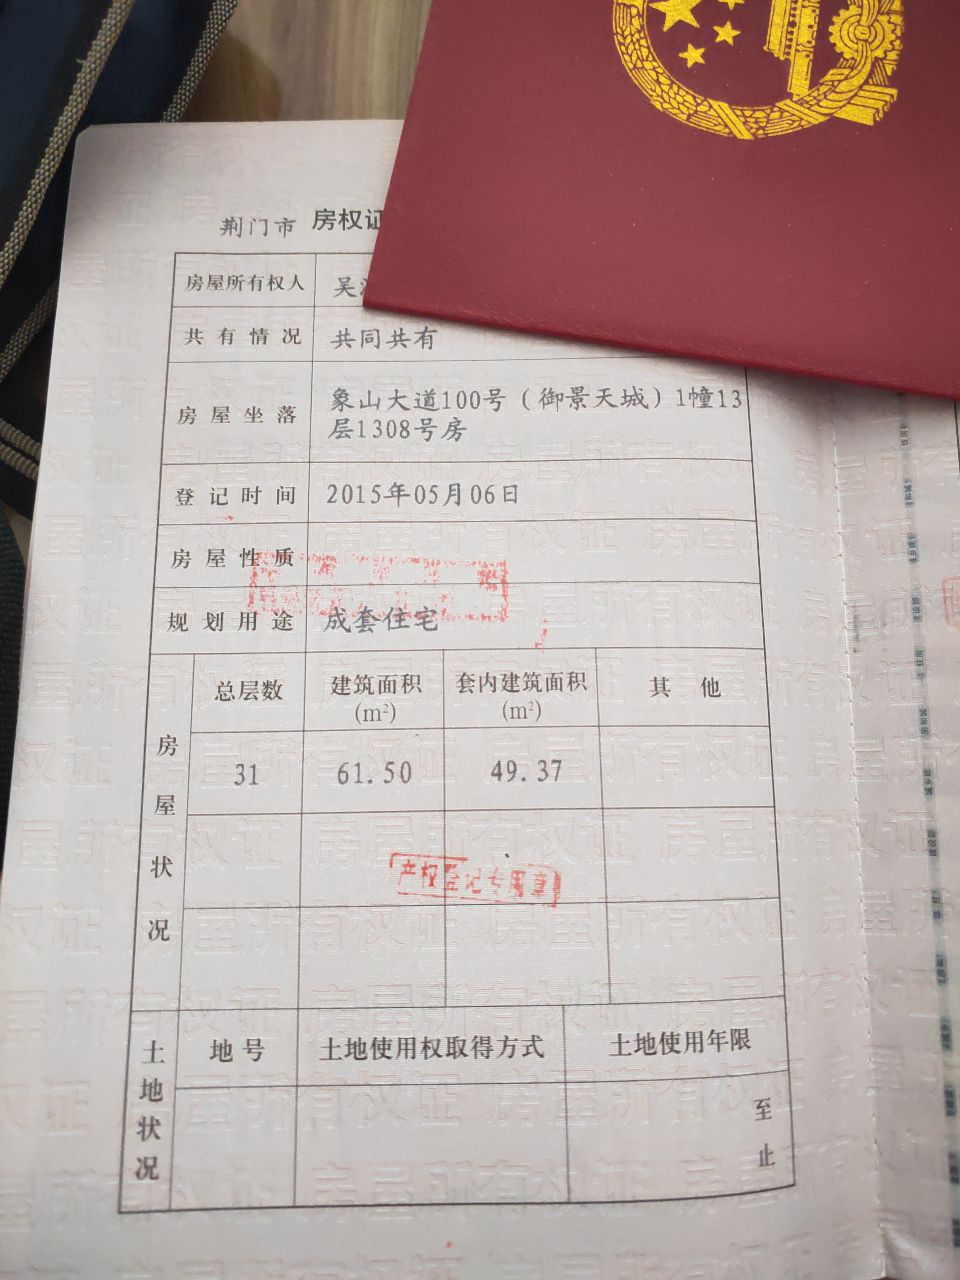 荆门市 房权证
房屋所有权人 吴
共有情况 共同共有
房屋坐落 象山大道100号（御景天城）1幢13
层1308号房
登记时间 2015年05月06日
房屋性质
规划用途 成套住宅
房屋状况
总层数 建筑面积 套内建筑面积 其他
(m²) (m²)
31 61.50 49.37
产权登记专用章
土地状况
地号 土地使用权取得方式 土地使用年限
至
止